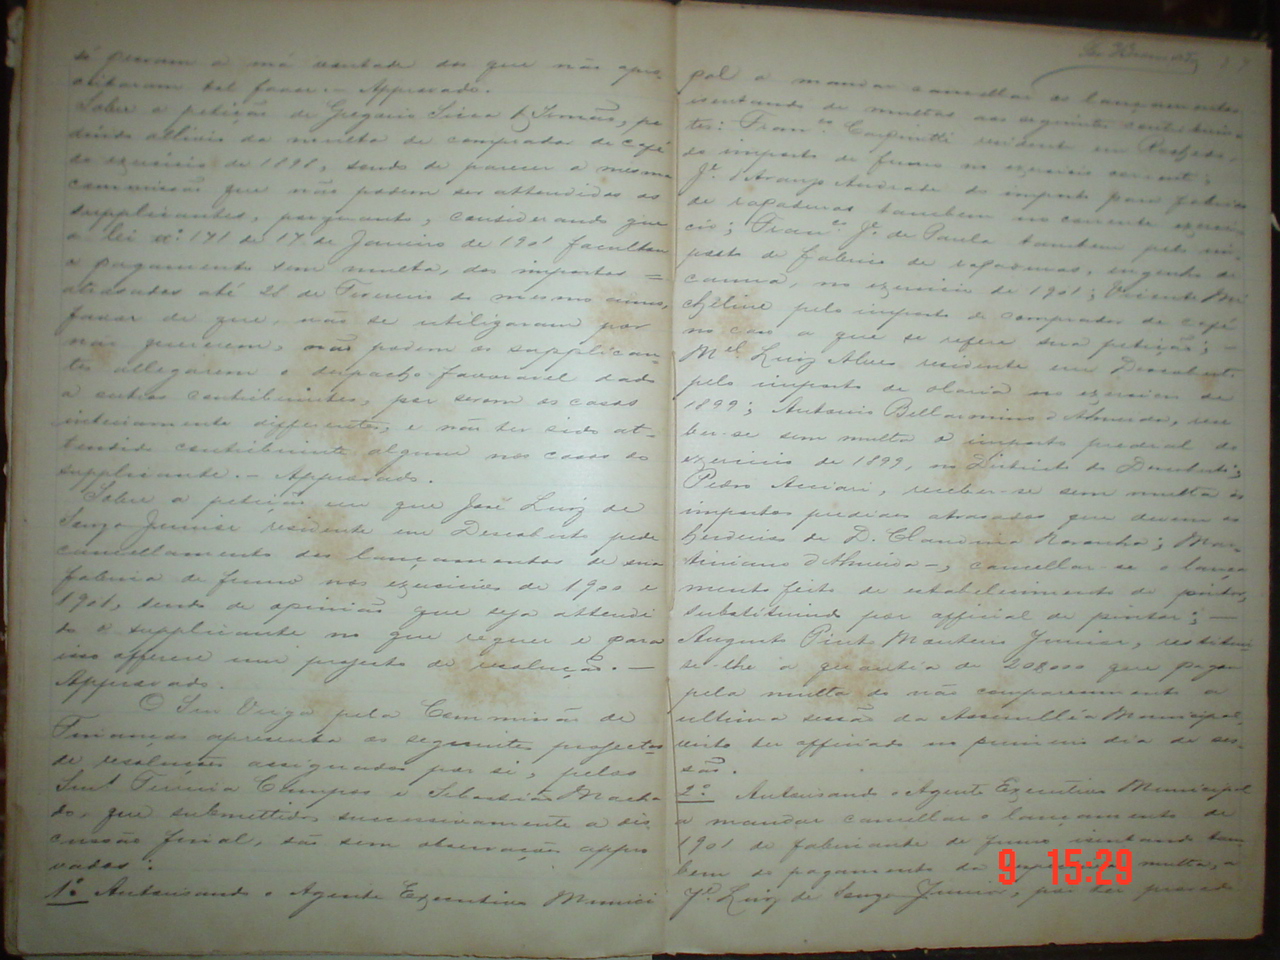 só provam a má vontade dos que não apro
veitaram tal favor. — Approvado.
Sobre a petição de Gregorio Simão, pe
dindo allivio da multa de comprador de café
do exercicio de 1898, sendo de parecer a mesma
commissão que não podem ser attendidos os
supplicantes, porquanto, considerando que
a lei nº 141 de 14 de Janeiro de 1901 facultou
o pagamento sem multa, dos impostos =
atrasados até 28 de Fevereiro do mesmo anno,
favor de que, não se utilizaram por
não quererem, não podem os supplican-
tes allegarem o despacho favoravel dado
a outros contribuintes, por serem os casos
inteiramente differentes, e não ter sido at-
tendido contribuinte algum nos casos do
supplicante. — Approvado.
Sobre a petição em que José Luiz de
Souza Junior residente em Descoberto pede
cancellamento dos lançamentos de sua
fabrica de fumo nos exercicios de 1900 e
1901, sendo de opinião que seja attendi
do o supplicante no que requer e para
isso offerece um projecto de resolução. —
Approvado.
O Snr Veiga pela Commissão de
Finanças apresenta os seguintes projectos
de resoluções assignados por si, pelos
Snrs Ferreira Campos e Sebastião Macha
do, que submettidos successivamente a dis
cussão final, são sem observações appro
vados:
1º Autorisando o Agente Executivo Munici
pal a mandar cancellar os lançamentos
isentando de multas aos seguintes contribuin-
tes: Franco residente em
do imposto de fumo no exercicio corrente;
Jé d'Araujo Andrade do imposto para fabrico
de rapaduras tambem no corrente exerci-
cio; Franco Jé de Paula tambem pelo im-
posto de fabrico de rapaduras, engenho de
canna, no exercicio de 1901; Vicente Mi
pelo imposto de comprador de café
no caso a que se refere sua petição; —
Mel Luiz Alves residente em Descoberto
pelo imposto de olaria no exercicio de
1899; Antonio Bellarmino d'Almeida, rece
ber-se sem multa o imposto predial do
exercicio de 1899, no Districto do Descoberto;
Pedro Acciari, receber-se sem multa os
impostos prediaes atrasados que devem os
herdeiros de D. Claudina; Mar-
tiniano d'Almeida —, cancellar-se o lança
mento feito de estabelecimento de pintor,
substituindo por official de pintor; —
Augusto Pinto Monteiro Junior, restitui
se-lhe a quantia de 20$000 que pagou
pela multa do não comparecimento a
ultima sessão da Assembléa Municipal,
visto ter officiado no primeiro dia de ses-
são.
2º Autorisando o Agente Executivo Municipal
a mandar cancellar o lançamento de
1901 de fabricante de fumo isentando tam
bem do pagamento da multa, a
Jé Luiz de Souza Junior, por ter provado
9 15:29